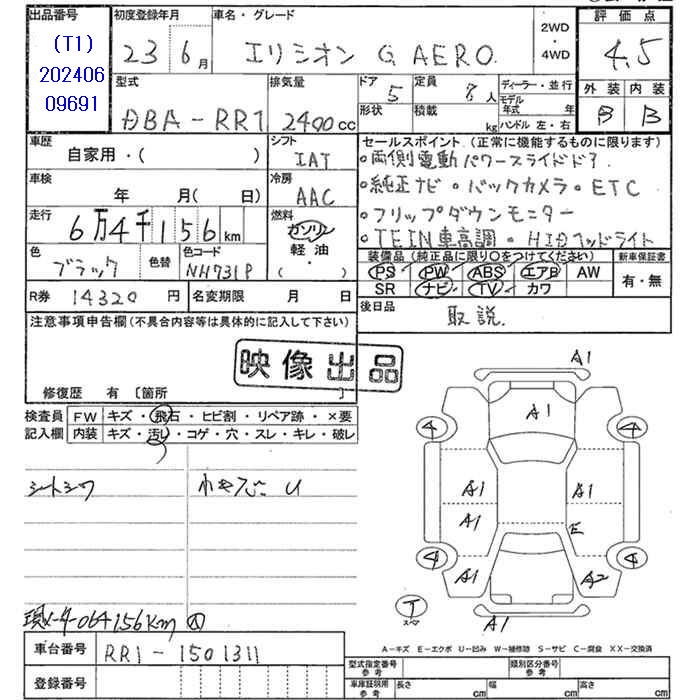 出品番号 初度登録年月 車名・グレード 評価点
(T1)
202406
09691
23 6月 エリシオン G AERO. 2WD ・ 4WD 4.5
型式 排気量 ドア 定員 ディーラー・並行 外装 内装
DBA-RR1 2400cc 5 8人 モデル年式 年 B B
形状 積載 kg ハンドル 左・右
車歴 シフト セールスポイント (正常に機能するものに限ります)
自家用・( ) IAT 両側電動パワースライドドア
車検 冷房 純正ナビ・バックカメラ・ETC
年 月( 日) AAC フリップダウンモニター
走行 6万4千156km 燃料 ガソリン TEIN車高調・HIDヘッドライト
軽油
・( )
色 ブラック 色替 色コード NH731P
装備品 (純正品に限り○をつけてください) 新車保証書
PS PW ABS エアB AW 有・無
SR ナビ TV カワ
R券 14320円 名変期限 月 日 後日品 取説.
注意事項申告欄(不具合内容等は具体的に記入して下さい)
映像出品
修復歴 有 〔箇所 〕
検査員 FW キズ・飛石・ヒビ割・リペア跡・×要
記入欄 内装 キズ・汚レ・コゲ・穴・スレ・キレ・破レ
シートシワ
A1
A1
4 4
A1 A1
A1 E
4 4
A1 A2
T スペア A1
064156km
A-キズ E-エクボ U-凹み W-補修跡 S-サビ C-腐食 XX-交換済
車台番号 RR1-1501311
型式指定番号 参考 類別区分番号 参考
登録番号 車庫証明用 参考 長さ cm 幅 cm 高さ cm